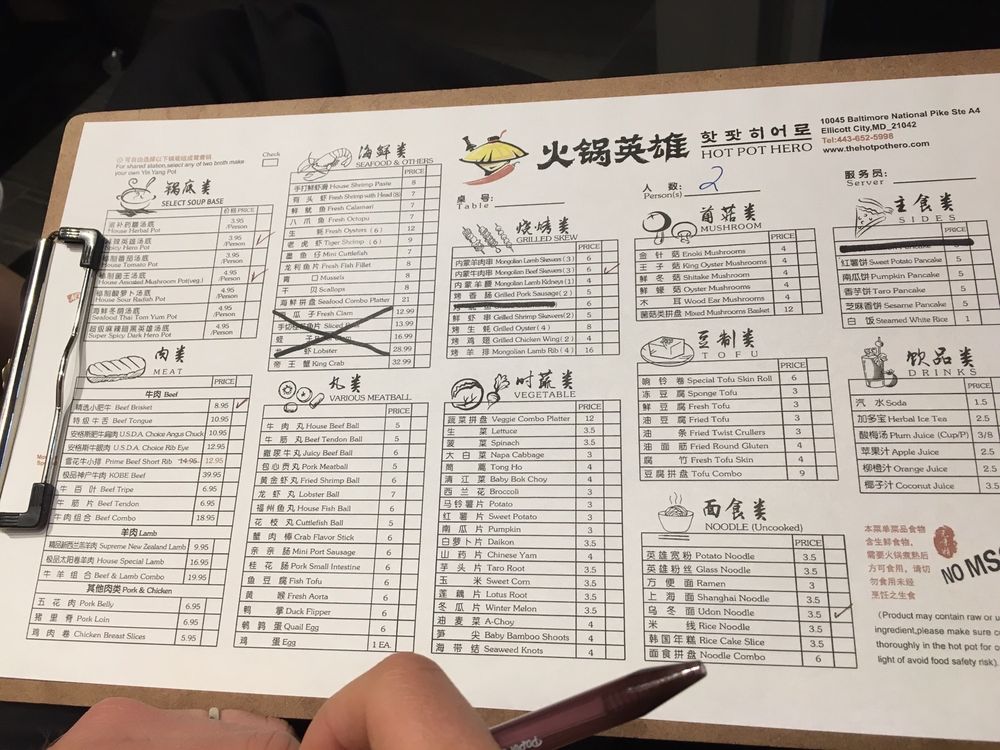 火锅英雄 핫팟히어로
HOT POT HERO
10045 Baltimore National Pike Ste A4
Ellicott City,MD_21042
Tel:443-652-5998
www.thehotpothero.com
桌号:
Table
人数:
Person(s) 2
服务员:
Server
For shared station,select any of two broth make
your own Yin Yang Pot
Check
锅底类
SELECT SOUP BASE
价格 PRICE
滋补药膳汤底 3.95
House Herbal Pot /Person
辣英雄汤底 3.95
Spicy Hero Pot /Person
制番茄汤底 3.95
House Tomato Pot /Person
制菌王汤底 4.95
House Assorted Mushroom Pot(veg.) /Person
制酸萝卜汤底 4.95
House Sour Radish Pot /Person
海鲜冬荫汤底 4.95
Seafood Thai Tom Yum Pot /Person
超级麻辣暗黑英雄汤底 4.95
Super Spicy Dark Hero Pot /Person
肉类
MEAT
PRICE
牛肉 Beef
精选小肥牛 Beef Brisket 8.95
特级牛舌 Beef Tongue 10.95
安格斯肥牛肩肉 U.S.D.A. Choice Angus Chuck 10.95
安格斯牛眼肉 U.S.D.A. Choice Rib Eye 12.95
雪花牛小排 Prime Beef Short Rib 14.95 12.95
极品神户牛肉 KOBE Beef 39.95
牛百叶 Beef Tripe 6.95
牛筋片 Beef Tendon 6.95
牛肉组合 Beef Combo 18.95
羊肉 Lamb
精品新西兰羔羊肉 Supreme New Zealand Lamb 9.95
极品太阳卷羊肉 House Special Lamb 16.95
牛羊组合 Beef & Lamb Combo 19.95
其他肉类 Pork & Chicken
五花肉 Pork Belly 6.95
猪里脊 Pork Loin 6.95
鸡肉卷 Chicken Breast Slices 5.95
海鲜类
SEAFOOD & OTHERS
PRICE
手打鲜虾滑 House Shrimp Paste 8
有头虾 Fresh Shrimp with Head(8) 7
鲜鱿鱼 Fresh Calamari 7
八爪鱼 Fresh Octopu 7
生蚝 Fresh Oysters (6) 12
老虎虾 Tiger Shrimp (6) 9
墨鱼仔 Mini Cuttlefish 7
龙利鱼片 Fresh Fish Fillet 8
青口 Mussels 8
干贝 Scallops 8
海鲜拼盘 Seafood Combo Platter 21
瓜子 Fresh Clam 12.99
手切 片 Sliced 13.99
16.99
虾 Lobster 28.99
帝王蟹 King Crab 32.99
丸类
VARIOUS MEATBALL
PRICE
牛肉丸 House Beef Ball 5
牛筋丸 Beef Tendon Ball 5
撒尿牛丸 Juicy Beef Ball 6
包心贡丸 Pork Meatball 5
黄金虾丸 Fried Shrimp Ball 6
龙虾丸 Lobster Ball 7
福州鱼丸 House Fish Ball 6
花枝丸 Cuttlefish Ball 5
蟹肉棒 Crab Flavor Stick 6
亲亲肠 Mini Port Sausage 6
桂花肠 Pork Small Intestine 6
鱼豆腐 Fish Tofu 6
黄喉 Fresh Aorta 6
鸭掌 Duck Flipper 6
鹌鹑蛋 Quail Egg 6
鸡蛋 Egg 1 EA.
烧烤类
GRILLED SKEW
PRICE
内蒙羊肉串 Mongolian Lamb Skewers(3) 6
内蒙牛肉串 Mongolian Beef Skewers(3) 6
内蒙羊腰 Mongolian Lamb Kidneys(1) 4
烤香肠 Grilled Pork Sausage(2) 5
6
鲜虾串 Grilled Shrimp Skewers(2) 5
烤生蚝 Grilled Oyster(4) 8
烤鸡翅 Grilled Chicken Wing(2) 4
烤羊排 Mongolian Lamb Rib(4) 16
时蔬类
VEGETABLE
PRICE
蔬菜拼盘 Veggie Combo Platter 12
生菜 Lettuce 3.5
菠菜 Spinach 3.5
大白菜 Napa Cabbage 3
茼蒿 Tong Ho 4
清江菜 Baby Bok Choy 4
西兰花 Broccoli 3
马铃薯片 Potato 3
红薯片 Sweet Potato 3
南瓜片 Pumpkin 3
白萝卜片 Daikon 3.5
山药片 Chinese Yam 4
芋头片 Taro Root 3.5
玉米 Sweet Corn 3.5
莲藕片 Lotus Root 3.5
冬瓜片 Winter Melon 3.5
油麦菜 A-Choy 4
笋尖 Baby Bamboo Shoots 4
海带结 Seaweed Knots 4
菌菇类
MUSHROOM
PRICE
金针菇 Enoki Mushrooms 4
王子菇 King Oyster Mushrooms 4
鲜冬菇 Shitake Mushrooms 4
鲜蠔菇 Oyster Mushrooms 4
木耳 Wood Ear Mushrooms 4
菌菇类拼盘 Mixed Mushrooms Basket 12
豆制类
TOFU
PRICE
响铃卷 Special Tofu Skin Roll 6
冻豆腐 Sponge Tofu 3
鲜豆腐 Fresh Tofu 3
油豆腐 Fried Tofu 3
油条 Fried Twist Crullers 3
油面筋 Fried Round Gluten 4
腐竹 Fresh Tofu Skin 4
豆腐拼盘 Tofu Combo 9
面食类
NOODLE (Uncooked)
PRICE
英雄宽粉 Potato Noodle 3.5
英雄粉丝 Glass Noodle 3.5
方便面 Ramen 3
上海面 Shanghai Noodle 3.5
乌冬面 Udon Noodle 3.5
米线 Rice Noodle 3.5
韩国年糕 Rice Cake Slice 3.5
面食拼盘 Noodle Combo 6
主食类
SIDES
PRICE
5
红薯饼 Sweet Potato Pancake 5
南瓜饼 Pumpkin Pancake 5
香芋饼 Taro Pancake 5
芝麻香饼 Sesame Pancake 5
白饭 Steamed White Rice 1
饮品类
DRINKS
PRICE
汽水 Soda 1.5
加多宝 Herbal Ice Tea 2.5
酸梅汤 Plum Juice (Cup/P) 3/8
苹果汁 Apple Juice 2.5
柳橙汁 Orange Juice 2.5
椰子汁 Coconut Juice 3.5
本菜单菜品食物
含生鲜食物,
需要火锅煮熟后
方可食用,请切
勿食用未经
烹饪之生食
NO MS
(Product may contain raw or u
ingredient,please make sure c
thoroughly in the hot pot for o
light of avoid food safety risk)